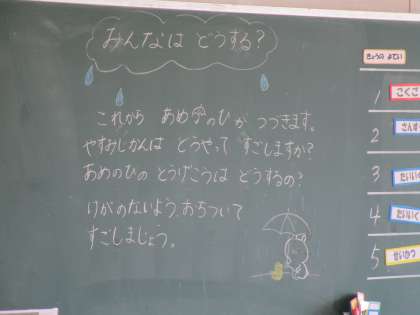 みんなは どうする?
これから あめ☂のひが つづきます。
やすみじかんは どうやって すごしますか?
あめのひの とうげこうは どうするの?
けがのないよう、おちついて
すごしましょう。
きょうの よてい
1 こくご
2 さんすう
3 たいいく
4 たいいく
5 せいかつ